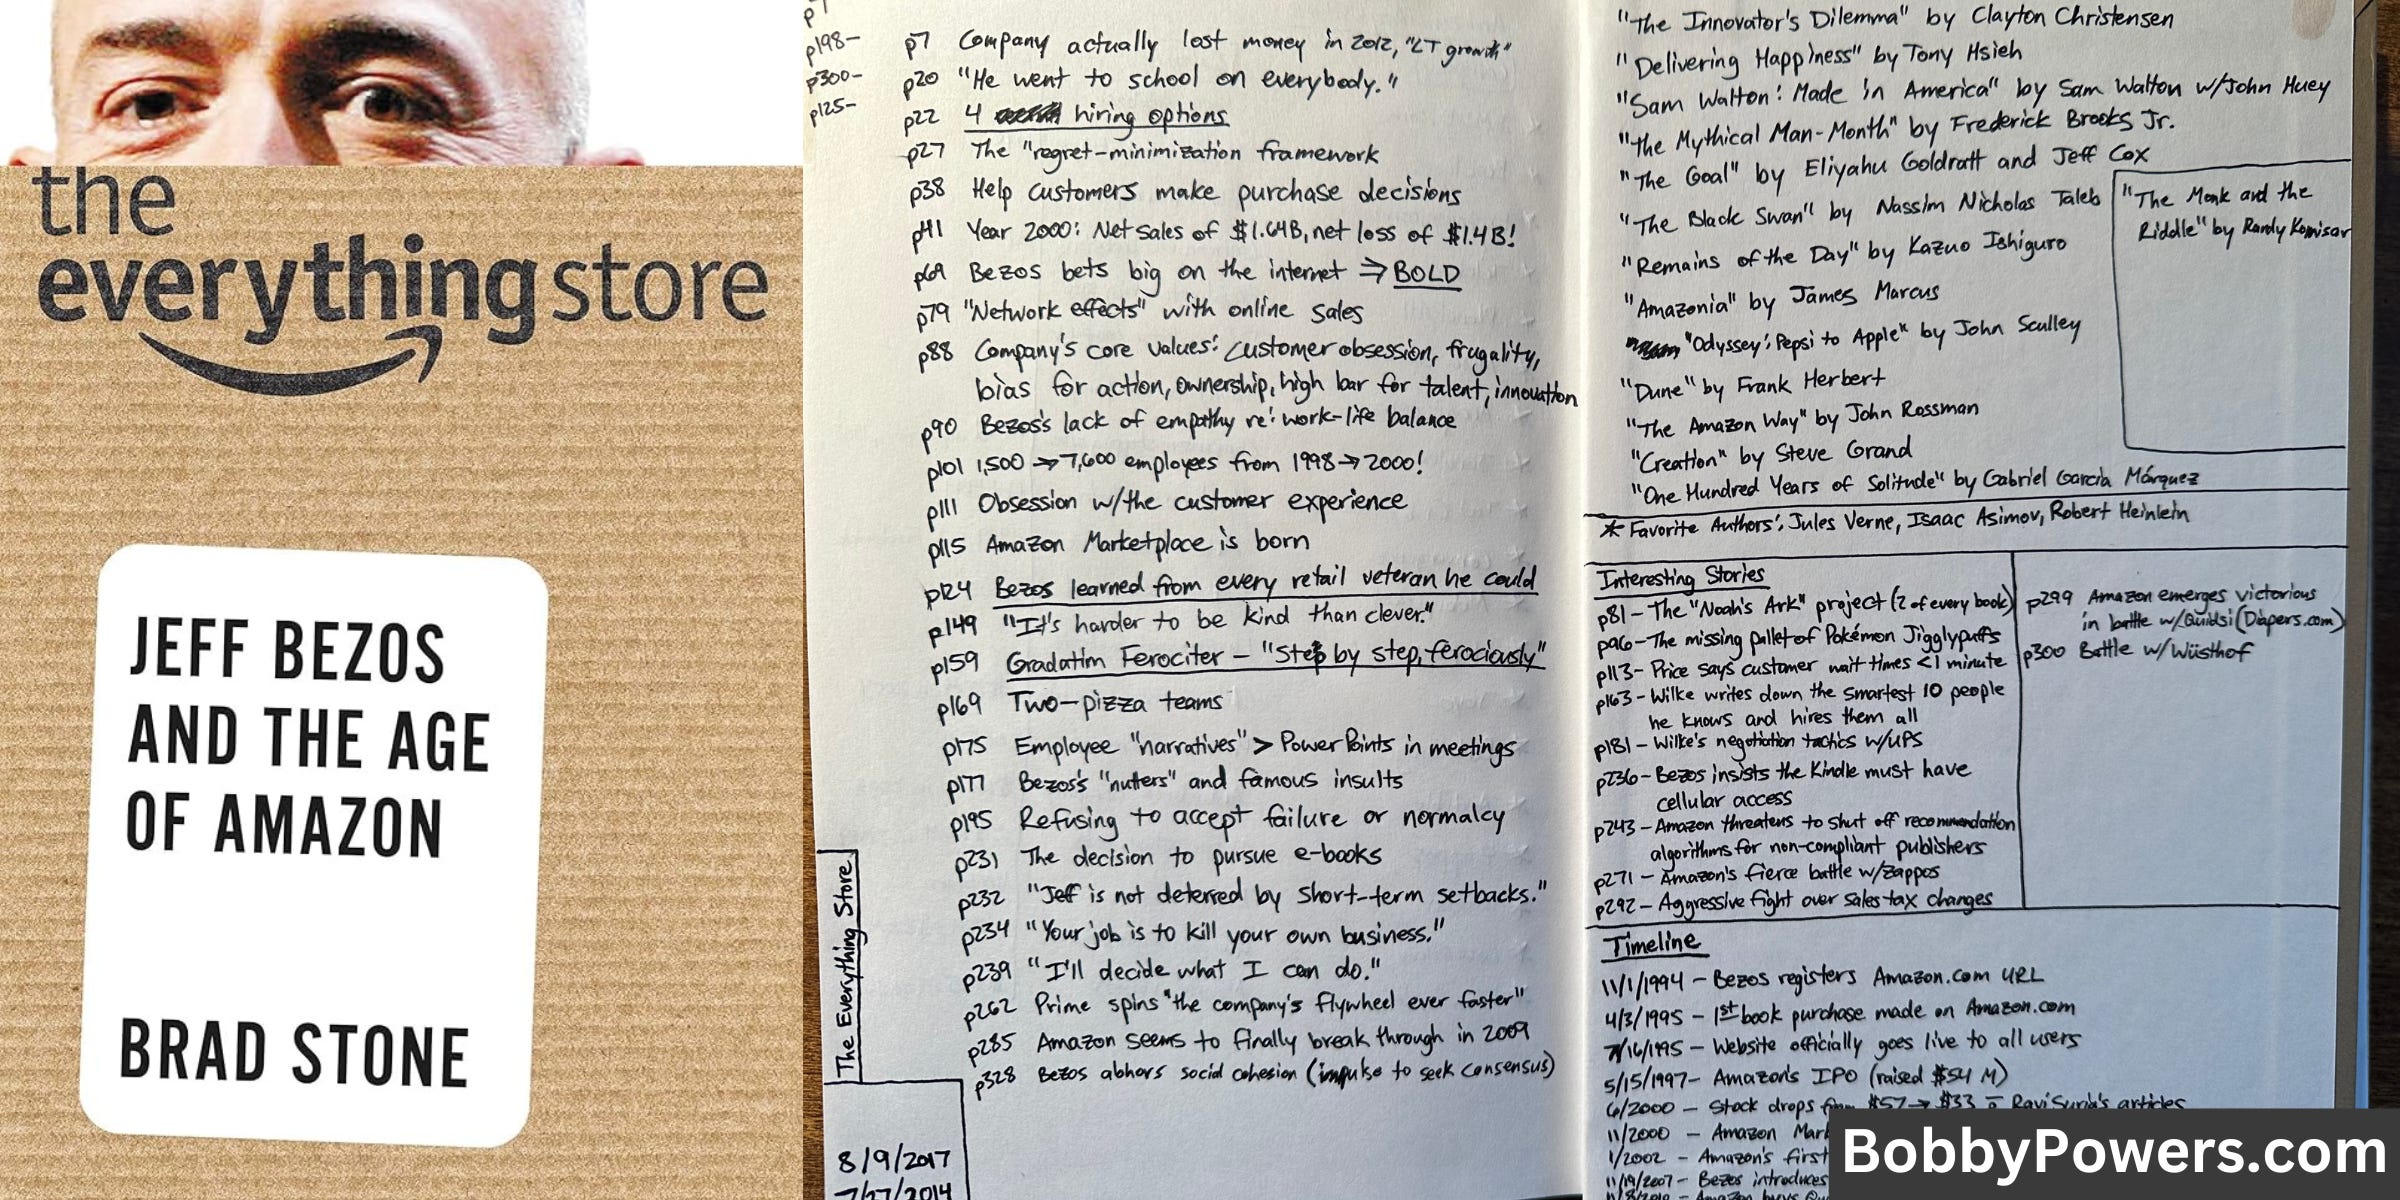 the
everything store
JEFF BEZOS
AND THE AGE
OF AMAZON
BRAD STONE
p198-
p300-
p125-
p7 Company actually lost money in 2012, "LT growth"
p20 "He went to school on everybody."
p22 4 hiring options
p27 The "regret-minimization framework
p38 Help customers make purchase decisions
p41 Year 2000: Net sales of $1.64B, net loss of $1.4B!
p69 Bezos bets big on the internet ⇒ BOLD
p79 "Network effects" with online sales
p88 Company's core values: customer obsession, frugality,
bias for action, ownership, high bar for talent, innovation
p90 Bezos's lack of empathy re: work-life balance
p101 1,500 → 7,600 employees from 1998 → 2000!
p111 Obsession w/the customer experience
p115 Amazon Marketplace is born
p124 Bezos learned from every retail veteran he could
p149 "It's harder to be kind than clever."
p159 Gradatim Ferociter - "Step by step, ferociously"
p169 Two-pizza teams
p175 Employee "narratives" > PowerPoints in meetings
p177 Bezos's "nutters" and famous insults
p195 Refusing to accept failure or normalcy
p231 The decision to pursue e-books
p232 "Jeff is not deterred by short-term setbacks."
p234 "Your job is to kill your own business."
p239 "I'll decide what I can do."
p262 Prime spins "the company's flywheel ever faster"
p285 Amazon seems to finally break through in 2009
p328 Bezos abhors social cohesion (impulse to seek consensus)
The Everything Store
8/9/2017
7/27/2014
"The Innovator's Dilemma" by Clayton Christensen
"Delivering Happiness" by Tony Hsieh
"Sam Walton: Made in America" by Sam Walton w/John Huey
"The Mythical Man-Month" by Frederick Brooks Jr.
"The Goal" by Eliyahu Goldratt and Jeff Cox
"The Black Swan" by Nassim Nicholas Taleb
"Remains of the Day" by Kazuo Ishiguro
"Amazonia" by James Marcus
"Odyssey: Pepsi to Apple" by John Sculley
"Dune" by Frank Herbert
"The Amazon Way" by John Rossman
"Creation" by Steve Grand
"One Hundred Years of Solitude" by Gabriel García Márquez
"The Monk and the
Riddle" by Randy Komisar
* Favorite Authors: Jules Verne, Isaac Asimov, Robert Heinlein
Interesting Stories
p81 - The "Noah's Ark" project (2 of every book)
p96 - The missing pallet of Pokémon Jigglypuffs
p113 - Price says customer wait times <1 minute
p163 - Wilke writes down the smartest 10 people
he knows and hires them all
p181 - Wilke's negotiation tactics w/UPS
p236 - Bezos insists the Kindle must have
cellular access
p243 - Amazon threatens to shut off recommendation
algorithms for non-compliant publishers
p271 - Amazon's fierce battle w/Zappos
p292 - Aggressive fight over sales tax changes
p299 Amazon emerges victorious
in battle w/Quidsi (Diapers.com)
p300 Battle w/Wüsthof
Timeline
11/1/1994 - Bezos registers Amazon.com URL
4/3/1995 - 1st book purchase made on Amazon.com
7/16/1995 - Website officially goes live to all users
5/15/1997 - Amazon's IPO (raised $54 M)
6/2000 - Stock drops from $57 → $33 Ravi Suria's articles
11/2000 - Amazon
1/2002 - Amazon's first
11/19/2007 - Bezos introduces
BobbyPowers.com